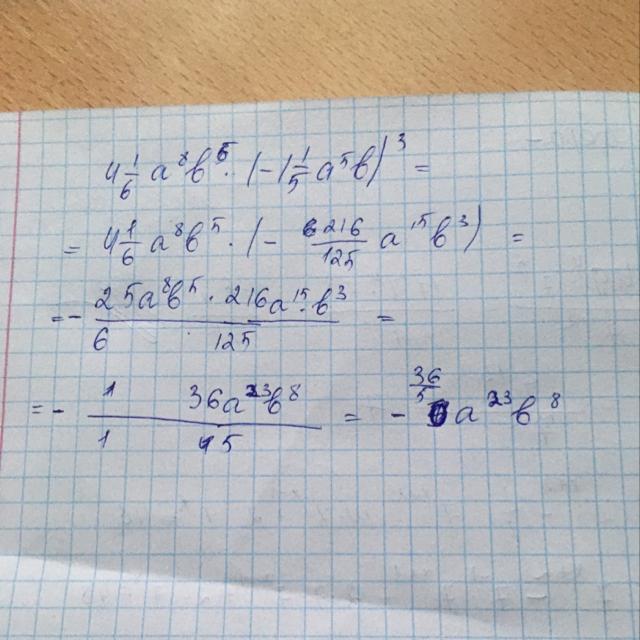 4 1/6 a⁸b⁵ · (-1 1/5 a⁵b)³ =
= 4 1/6 a⁸b⁵ · (- 216/125 a¹⁵b³) =
= - 25a⁸b⁵ · 216a¹⁵ · b³ / 6 125 =
= - 1 36a²³b⁸ / 1 5 = - 36/5 a²³b⁸